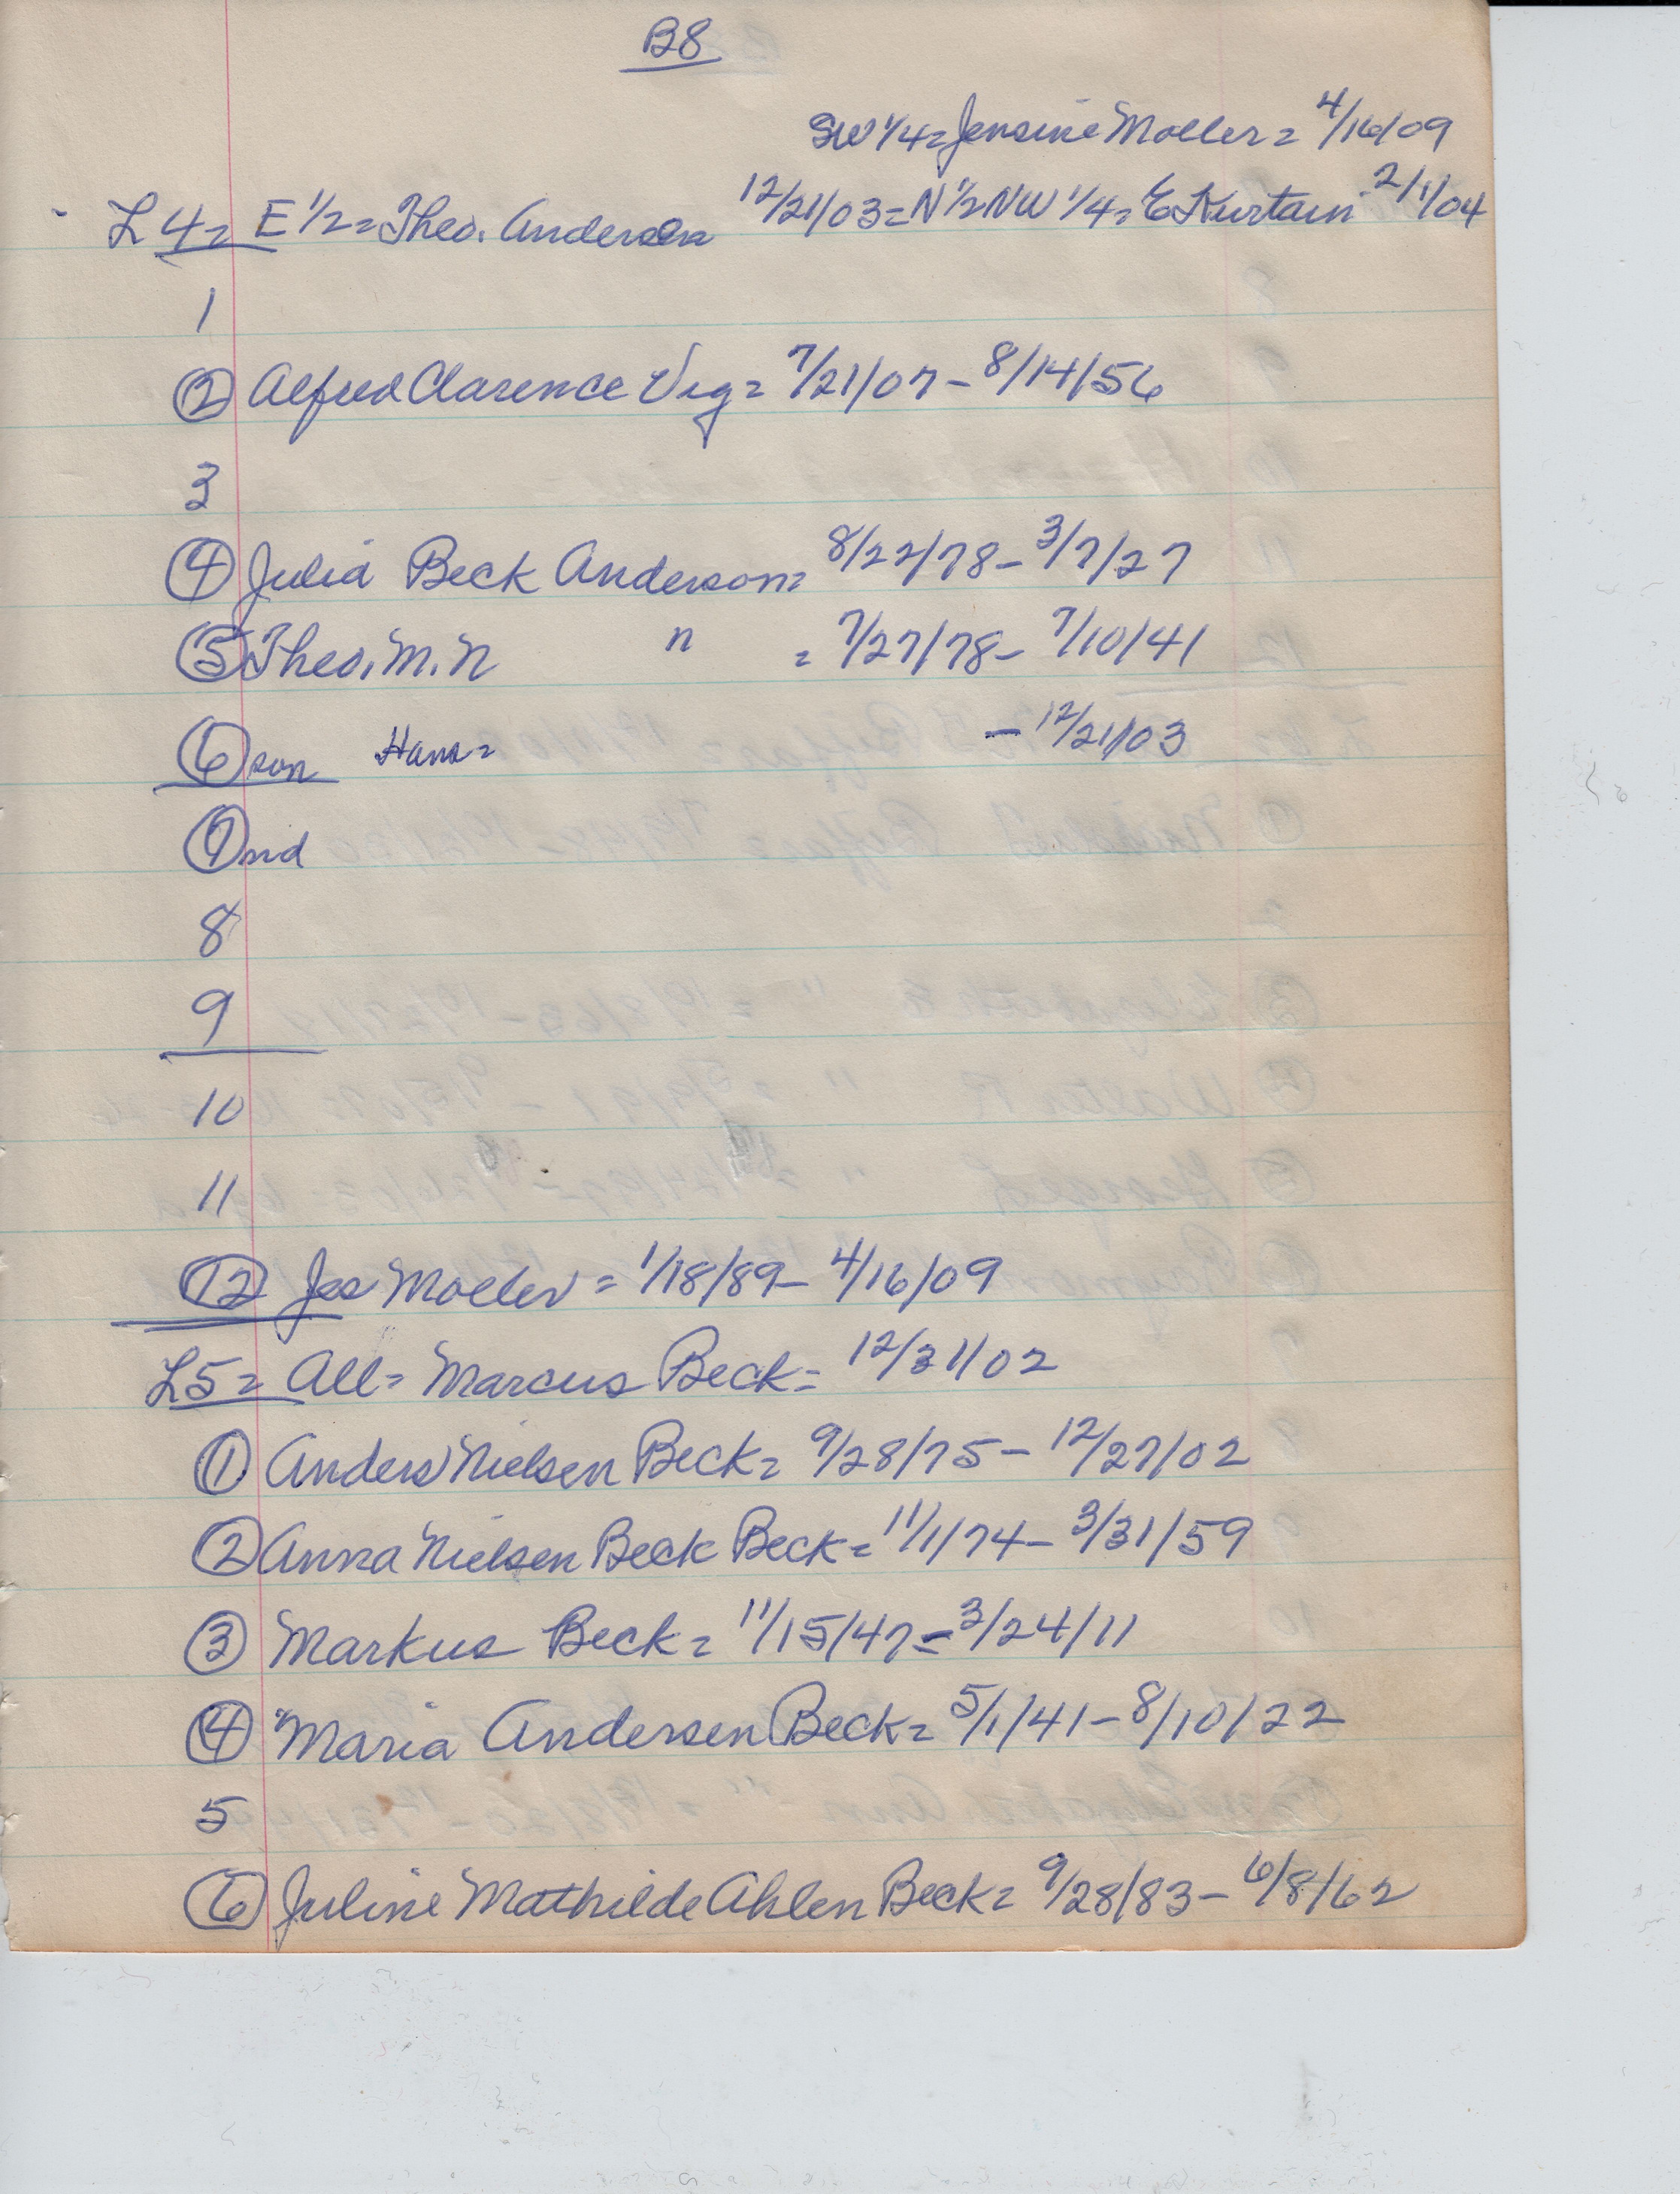 B8
SW 1/4= Jensine Moller= 4/16/09
L4= E 1/2= Theo. Andersen 12/21/03= N 1/2 NW 1/4= E Kurtain 2/1/04
1
2 Alfred Clarence Vig= 7/21/07- 8/14/56
3
4 Julia Beck Anderson= 8/22/78- 3/7/27
5 Theo. M. N " = 7/27/78- 7/10/41
6 son Hans= - 12/21/03
7 nid
8
9
10
11
12 Jes Moeller= 1/18/89- 4/16/09
L5= All= Marcus Beck= 12/31/02
1 Anders Nielsen Beck= 9/28/75- 12/27/02
2 Anna Nielsen Beck Beck= 11/1/74- 3/31/59
3 Markus Beck= 11/15/47- 3/24/11
4 Maria Andersen Beck= 5/1/41- 8/10/22
5
6 Juline Mathilde Ahlen Beck= 9/28/83- 6/8/62